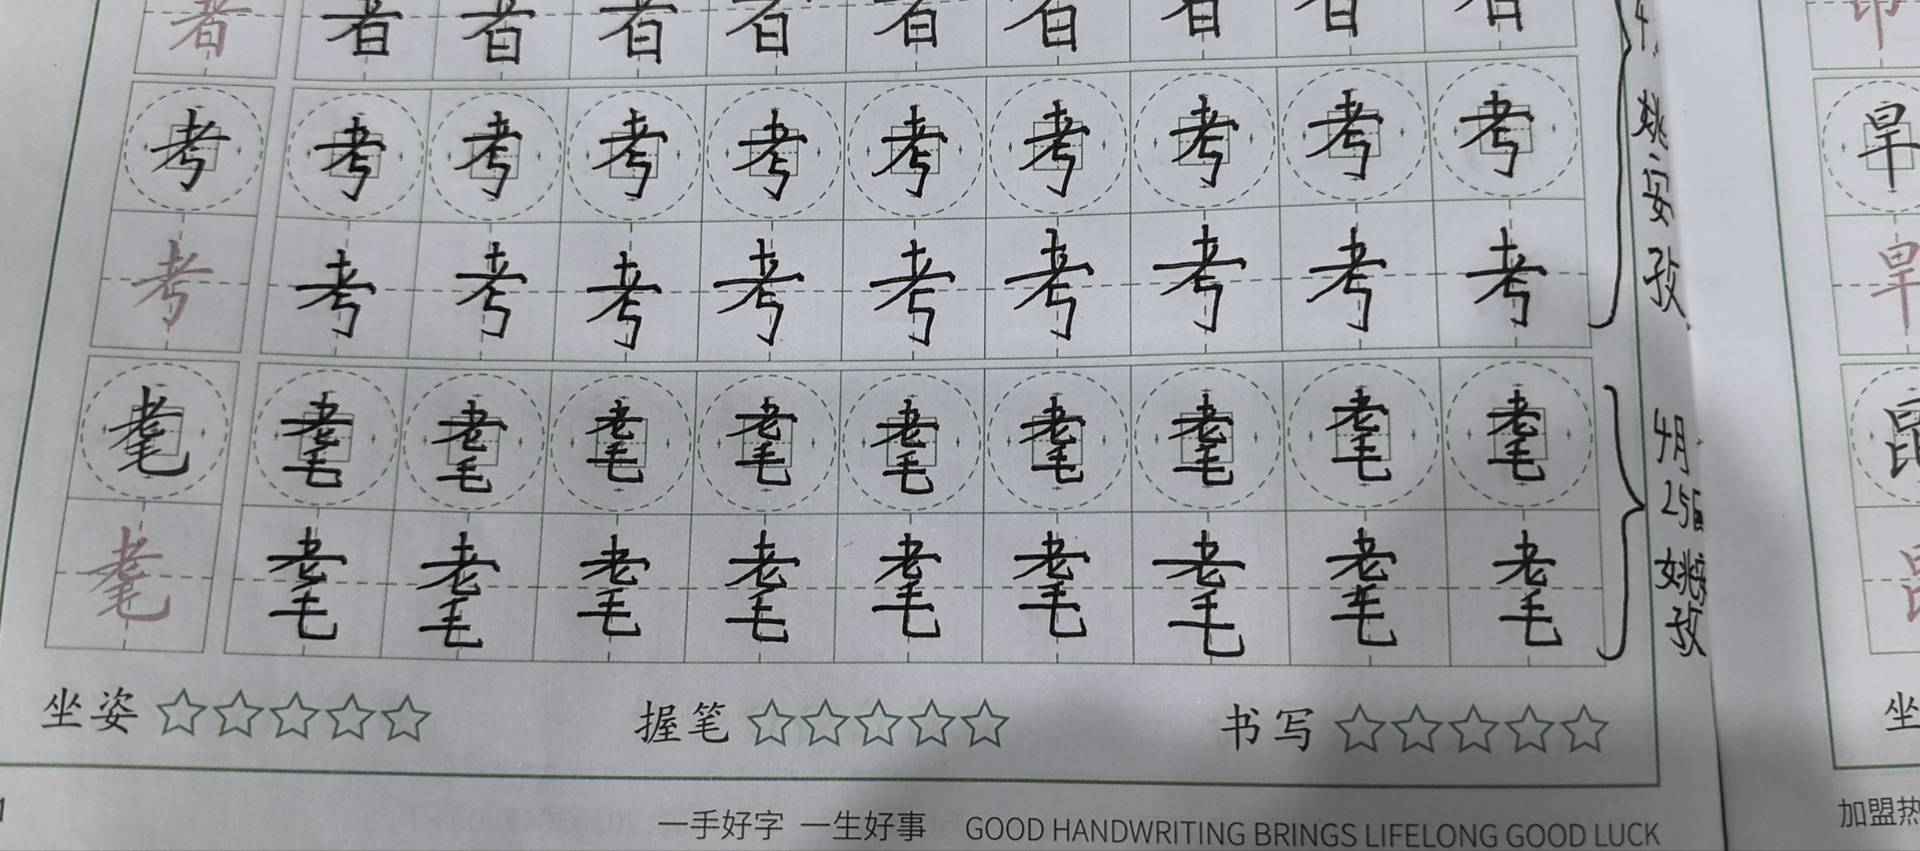 者 者 者 者 者 者 者 者 者 者
考 考 考 考 考 考 考 考 考 考
考 考 考 考 考 考 考 考 考 考
耄 耄 耄 耄 耄 耄 耄 耄 耄 耄
耄 耄 耄 耄 耄 耄 耄 耄 耄 耄
姚安孜
4月
25日
姚安
孜
坐姿 ☆☆☆☆☆ 握笔 ☆☆☆☆☆ 书写 ☆☆☆☆☆
一手好字 一生好事 GOOD HANDWRITING BRINGS LIFELONG GOOD LUCK
旱
旱
昆
坐
加盟热